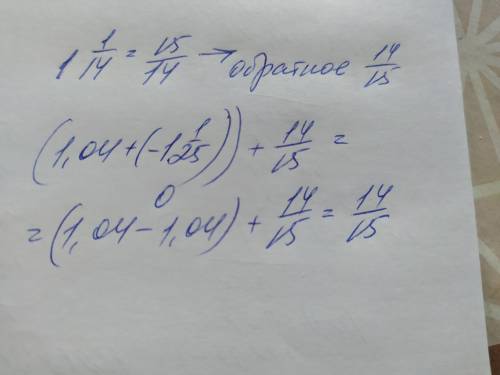 1 1/14 = 15/14 → обратное 14/15
(1,04 + (-1 1/25)) + 14/15 =
0
= (1,04 - 1,04) + 14/15 = 14/15